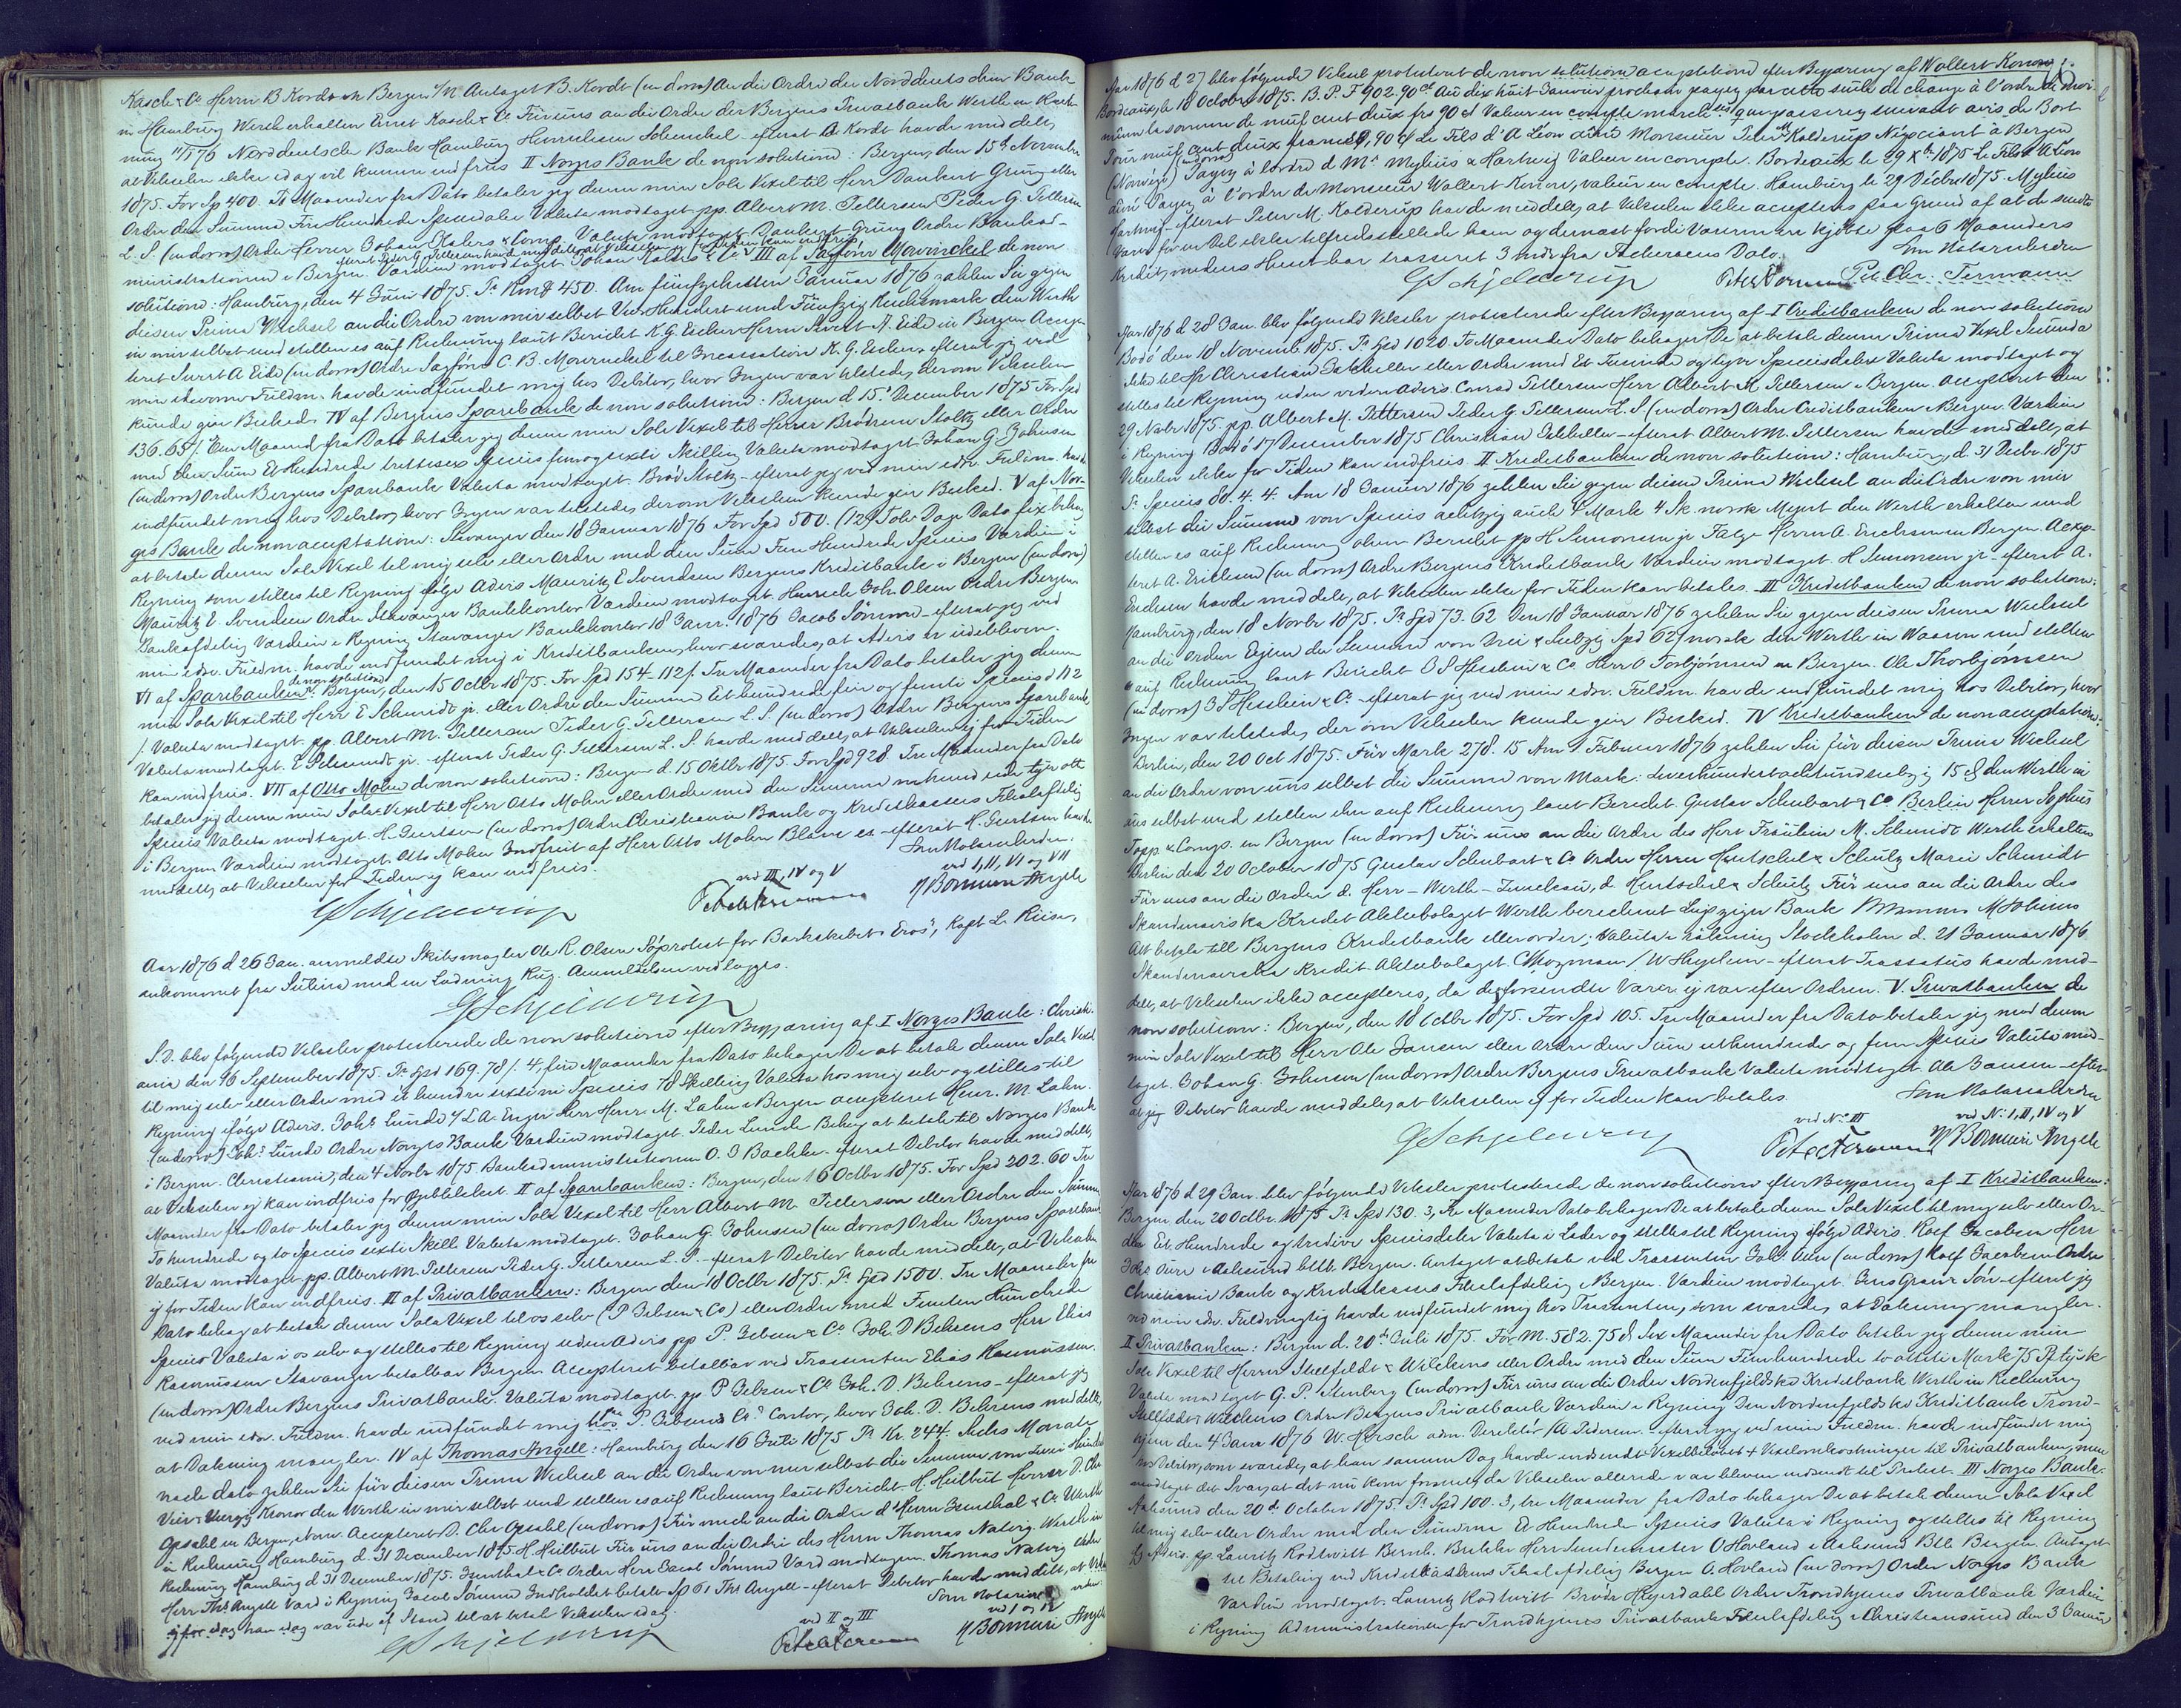 Kasch & Co Herrn B Kordt in Bergen. Antaget B. Kordt (in dorso) An die Ordre der Norddeutschen Bank
in Hamburg Werth erhalten Ernst Kasch & Co Für uns an die Ordre der Bergens Privatbank Werth in Rech-
nung 11/1 76 Norddeutsche Bank Hamburg - efterat B. Kordt havde meddelt,
at Vekselen ikke idag vil kunne indfries II Norges Bank de non solutione: Bergen, den 15de November
1875. For Sp 400. To Maaneder fra Dato betaler jeg denne min Sola Vexel til Herr Dankert Grung eller
Ordre den Summa Fire Hundrede Speciedaler Valuta modtaget pp. Albert M. Pettersen Peder G. Pettersen
L. S. (in dorso) Ordre Herrer Johan Ehlers & Comp. Valuta modtaget Dankert Grung Ordre Bankad-
efterat Peder G. Pettersen havde meddelt at Vekselen ej for Tiden kan indfries
ministrationen i Bergen. Værdien modtaget Johan Ehlers & Co III af Sagfører Mowinckel de non
solutione: Hamburg, den 4 Juni 1875. Pr Rmk 450. Am fünfzehnten Januar 1876 zahlen Sie gegen
diesen Prima Wechsel an die Ordre von mir selbst Vier Hundert und Fünfzig Reichsmark den Werth
in mir selbst und stellen es auf Rechnung laut Bericht K. G. Escher Herrn Sivert A. Eide in Bergen Accep-
teret Sivert A Eide (in dorso) Ordre Sagfører C. B. Mowinckel til Incassation K. G. Escher - efterat jeg ved
min edsvorne Fuldm. havde indfundet mig hos Debitor, hvor Ingen var tilstede, der om Vekselen
kunde give Besked. IV af Bergens Sparebank de non solutione: Bergen d 15de December 1875 For Spd
136. 65 ß. En Maaned fra Dato betaler jeg denne min Sola Vexel til Herrer Brødrene Stoltz eller Ordre
med den Sum Et Hundrede trettisex Species femogsexti Skilling Valuta modtaget Johan G. Johnsen
(in dorso) Ordre Bergens Sparebank Valuta modtaget. Brød. Stoltz - efterat jeg ved min edsv. Fuldm. havde
indfundet mig hos Debitor, hvor Ingen var tilstede, der om Vekselen kunde give Besked. V af Nor-
ges Bank de non acceptatione: Stavanger den 18 Januar 1876 For Spd 500. (12) Tolv Dage Dato fix behag
at betale denne Sola Vexel til mig selv eller Ordre med den Sum Fem Hundrede Species Værdien i
Regning som stilles til Regning ifølge Advis Mauritz E Svendsen Bergens Kreditbank i Bergen (in dorso)
Mauritz E. Svendsen Ordre Stavanger Bankkontor Værdien modtaget. Henrich Joh. Olsen Ordre Bergens
Bankafdeling Værdien i Regning Stavanger Bankkontor 18 Janr. 1876 Jacob Sømme - efterat jeg ved
min edsv. Fuldm. havde indfundet mig i Kreditbanken, hvor svaredes, at Advis er udebleven.
de non solutione
VI af Sparebanken: Bergen, den 15 Octbr 1875. For Spd 154 - 112 ß. Tre Maaneder fra Dato betaler jeg denne
min Sola Vexel til Herr E Schmidt jr. eller Ordre den Summa Et hundrede fire og femti Species & 112
ß Valuta modtaget. pp. Albert M. Pettersen Peder G. Pettersen L. S. (in dorso) Ordre Bergens Sparebank
Valuta modtaget. E Schmidt jr. - efterat Peder G. Pettersen L. S. havde meddelt, at Vekselen ej for Tiden
kan indfries. VII af Otto Mohn de non solutione: Bergen d. 15 Oktbr 1875. For Spd 928. Tre Maaneder fra Dato
betaler jeg denne min Sola Vexel til Herr Otto Mohn eller Ordre med den Summa nihundrede tyve otte
Species Valuta modtaget. H. Guttsen (in dorso) Ordre Christiania Bank og Kreditkasses Filialafdeling
i Bergen Værdien modtaget. Otto Mohn Indfriet af Herr Otto Mohn - efterat H. Guttsen havde
meddelt, at Vekselen for Tiden ej kan indfries.
Som Notarialvidner
ved III, IV og V ved I, II, VI og VII
GSchjelderup Pet Chr Termann N Bonnevie Angell
Aar 1876 d 26 Jan. anmeldte Skibsmægler Ole R. Olsen Søprotest for Barkskibet "Eros", Kapt L. Riiser,
ankommet fra Sulina med en Ladning Rug. Anmeldelsen vedlægges.
GSchjelderup
S. D. blev følgende Veksler protesterede de non solutione efter Begjæring af I Norges Bank: Christi-
ania den 16 September 1875. Pr Spd 169. 78 ß. 4, fire Maaneder fra Dato behager De at betale denne Sola Vexel
til mig selv eller Ordre med et hundre sexti ni Species 78 Skilling Valuta hos mig selv og stilles til
Regning ifølge Advis. Johs Lunde Herr Henr. M. Lahn i Bergen accepteret Henr. M. Lahn.
(in dorso) Johs Lunde Ordre Norges Bank Værdien modtaget. Peder Lunde Behag at betale til Norges Bank
i Bergen. Christiania, den 4 Novbr 1875 Bankadministrationen O. J Bachke. efterat Debitor havde meddelt,
at Vekselen ej kan indfries for Øjeblikket. II af Sparebanken: Bergen, den 16 Octbr 1875. For Spd 202. 60 Tre
Maaneder fra Dato betaler jeg denne min Sola Vexel til Herr Albert M. Pettersen eller Ordre den Summa
To hundrede og to Species sexti Skill. Valuta modtaget. Johan G. Johnsen (in dorso) Ordre Bergens Sparebank
Valuta modtaget pp. Albert M. Pettersen Peder G. Pettersen L. S. - efterat Debitor havde meddelt, at Vekselen
ej for Tiden kan indfries. III af Privatbanken: Bergen den 18 Octbr 1875. Pr Spd 1500. Tre Maaneder fra
Dato behag at betale denne Sola Vexel til os selv (P Jebsen & Co) eller Ordre med Femten Hundrede
Species Valuta i os selv og stilles til Regning uden Advis pp P. Jebsen & Co Joh. D Behrens Herr Elias
Rasmussen Stavanger betalbar Bergen. Accepteret betalbar ved Trassenten Elias Rasmussen.
(in dorso) Ordre Bergens Privatbank. Valuta modtaget pp P Jebsen & Co Joh. D. Behrens - efterat jeg
ved min edsv. Fuldm. havde indfundet mig hos P. Jebsen & Co's Contor, hvor Joh. D. Behrens meddelte,
at Dækning mangler. IV af Thomas Angell: Hamburg den 16 Juli 1875 Pr Kr. 244. Sechs Monate
nach dato zahlen Sie für diesen Prima Wechsel an die Ordre von mir selbst die Summe von Zwei Hundert
Vier & Vierzig Kronor den Werth in mir selbst und stellen es auf Rechnung laut Bericht H. Heilbut Herrn D. Chr
Opsahl in Bergen, Accepteret D. Chr Opsahl (in dorso) Für mich an die Ordre d Herrn Zinnthal & Co Werth
in Rechnung Hamburg d. 31 December 1875 H. Heilbut Für uns an die Ordre des Herrn Thomas Natvig. Werth in
Rechnung Hamburg d 31 December 1875. Zinnthal & Co Order Herr Jacob Sømme Værd modtagen. Thomas Natvig Order
Herr Ths Angell Værd i Regning Jacob Sømme Indholdet betalt Ths Angell - efterat Debitor havde meddelt, at
han idag var ude af Stand til at betale Vekselen idag.
Som Notarialvidner:
ved II og III ved I og IV
GSchjelderup Pet Chr Termann N Bonnevie Angell
Aar 1876 d 27 blev følgende Veksel protesteret de non acceptatione efter Begjæring af Wollert Konow:
Bordeaux, le 18 Octobre 1875. B. P. F 902. 90 cs Au dix huit Janvier prochain payez par cette seule de change à l'ordre de moi-
même la somme de neuf cent deux frs 90 cs Valeur en compte que passerez suivant avis de Bort
Pour neuf cent deux francs, 90 cs Le Fils d'A Léon ainé Monsieur Peter M Kolderup Négociant à Bergen
(Norvège) (in dorso) Payez à l'ordre de Mrs Mylius & Hartwig Valeur en compte. Bordeaux le 29 Xbr 1875 Le Fils d'A Léon
ainé Payez à l'ordre de Monsieur Wollert Konow, valeur en compte. Hamburg le 29 Décbre 1875. Mylius
Hartwig - efterat Peter M. Kolderup havde meddelt, at Vekselen ikke accepteres paa Grund af at de sendte
Varer for en Del ikke tilfredsstillede ham og dernæst fordi Varerne ere kjøbte paa 6 Maaneders
Kredit, medens Huset har trasseret 3 Mdr fra Facturaens Dato.
Som Notarialvidner
GSchjelderup Pet Chr Termann Pet. Chr. Termann
Aar 1876 d 28 Jan. blev følgende Veksler protesterede efter Begjæring af I Creditbanken de non solutione
Bodø den 18 Novemb. 1875. Pr Spd 1020. To Maaneder Dato behager De at betale denne Prima Vexel Secunda
ikke til Hr Christian Jakhelln eller Ordre med Et Tusinde og tyve Speciesdaler Valuta modtaget og
stilles til Regning uden videre Advis. Conrad Pettersen Herr Albert M. Pettersen i Bergen. Accepteret den
29 Novbr 1875. pp. Albert M. Pettersen Peder G. Pettersen L. S (in dorso) Ordre Creditbanken i Bergen. Værdien
i Regning Bodø 17 December 1875 Christian Jakhelln - efterat Albert M. Pettersen havde meddelt, at
Vekselen ikke for Tiden kan indfries. II Kreditbanken de non solutione: Hamburg, d. 31 Decbr 1875
Pr. Species 80. 4. 4. Am 18 Januar 1876 zahlen Sie gegen diesen Prima Wechsel an die Ordre von mir
selbst die Summe von Species achtzig auch 4 Mark 4 Sk. norsk Mynt den Werth erhalten und
stellen es auf Rechnung ohne Bericht pp H Simonsen jr Herrn A. Erichsen Bergen. Accep-
teret A. Erichsen (in dorso) Ordre Bergens Kreditbank Værdien modtaget. H Simonsen jr - efterat A.
Erichsen havde meddelt, at Vekselen ikke for Tiden kan betales. III Kreditbanken de non solutione:
Hamburg, den 18 Novbr 1875. Pr Spd 73. 62 Den 18 Januar 1876 zahlen Sie gegen diesen Prima Wechsel
an die Ordre Eigene die Summe von Drei & Siebzig Spd 62 ß norsk den Werth in Waaren und stellen
auf Rechnung laut Bericht O S Hesslein & Co. Herr O Torbjørnsen in Bergen. Ole Thorbjørnsen
(in dorso) J S Hesslein & Co - efterat jeg ved min edsv. Fuldm. havde indfundet mig hos Debitor, hvor
Ingen var tilstede, der om Vekselen kunde give Besked. IV Kreditbanken de non acceptatione:
Berlin, den 20 Oct 1875. Für Mark 278. 15 Am 1. Februar 1876 zahlen Sie für diesen Prima Wechsel
an die Ordre von uns selbst die Summe von Mark: zweihundertachtundsiebzig 15 ₰ den Werth in
uns selbst und stellen ihn auf Rechnung laut Bericht. Gustav Schubart & Co Berlin Herrn Sophus
Topp & Comp. in Bergen (in dorso) Für uns an die Ordre des Herr Fräulein M. Schmidt Werth erhalten
Berlin den 20 October 1875 Gustav Schubart & Co Ordre Herren Hentschel & Schulz Marie Schmidt
Für uns an die Ordre d. Herr - Werth - Zwickau, d. Hentschel & Schulz Für uns an die Ordre des
Skandinaviska Kredit Aktiebolaget Werth berechnet Leipziger Bank
Att betala till Bergens Kreditbank eller order; Valuta i räkning Stockholm d. 21 Januar 1876.
Skandinaviska Kredit-Aktiebolaget. - efterat Trassatus havde med-
delt, at Vekselen ikke accepteres, da de forsendte Varer ej var efter Ordren. V. Privatbanken de
non solutione: Bergen, den 18 Octbr 1875. For Spd 105. Tre Maaneder fra Dato betaler jeg mod denne
min Sola Vexel til Herr Ole Jansen eller Ordre den Sum ethundrede og fem Species Valuta mod-
taget. Johan G. Johnsen (in dorso) Ordre Bergens Privatbank Valuta modtaget. Ole Jansen - efter-
at Debitor havde meddelt, at Vekselen ej for Tiden kan betales.
Som Notarialvidner
ved No III ved No I, II, IV og V
GSchjelderup Pet Chr Termann N Bonnevie Angell
Aar 1876 d 29 Jan. blev følgende Veksler protesterede de non solutione efter Begjæring af I Kreditbanken:
Bergen den 20 Octbr. 1875 Pr Spd 130. 3, tre Maaneder Dato behager De at betale denne Sola Vexel til mig selv eller Or-
dre Et Hundrede og tredive Speciesdaler Valuta i Læder og stilles til Regning ifølge Advis. Rolf Jacobsen Herr
Johs Aure i Aalesund btlb. Bergen. Antaget at betale ved Trassenten Johs Aure (in dorso) Rolf Jacobsen Ordre
Christiania Bank og Kreditkasses Filialafdeling i Bergen. Værdien modtaget. Jens Gran's Søn - efterat jeg
ved min edsv. Fuldmægtig havde indfundet mig hos Trassenten, som svarede, at Dækning mangler.
II Privatbanken: Bergen d. 20de Juli 1875. For M. 582. 75 ₰ Sex Maaneder fra Dato betaler jeg denne min
Sola Vexel til Herrer Stellfeldt & Wilckens eller Ordre med den Sum Femhundrede to ottiti Mark 75 Pf tysk
Valuta modtaget G. P. Stenberg (in dorso) Für uns an die Ordre Nordenfjeldske Kreditbank Werth in Rechnung
Stellfeldt & Wilckens Ordre Bergens Privatbank Værdien i Regning Den Nordenfjeldske Kreditbank Trond-
hjem den 4 Janr 1876 W. Hersch adm. Direktør - efterat jeg ved min Fuldm. havde indfundet mig
hos Debitor, som svarede, at han samme Dag havde indsendt Vexelbeløbet + Vexelomkostninger til Privatbanken, men
modtaget det Svar, at det nu kom forsent, da Vekselen allerede var bleven indsendt til Protest. III Norges Bank:
Aalesund den 20de October 1875. Pr Spd 100. 3, tre Maaneder fra Dato behager De at betale denne Sola Vexel
til mig selv eller Ordre med den Summa Et Hundrede Species Valuta i Regning og stilles til Regning
ifg Advis. pp. Lauritz Rodtwitt Bernh. Brekke Herr O Hovland i Aalesund Btb Bergen. Antaget
til Betaling ved Kreditkassens Filialafdeling Bergen O. Hovland (in dorso) Order Norges Bank
Værdien modtaget. Lauritz Rodtwitt Brødr Heyerdahl Order Trondhjems Privatbank Værdien
i Regning Administrationen for Trondhjems Privatbanks Filialafdeling i Christiansund den 3 Januar